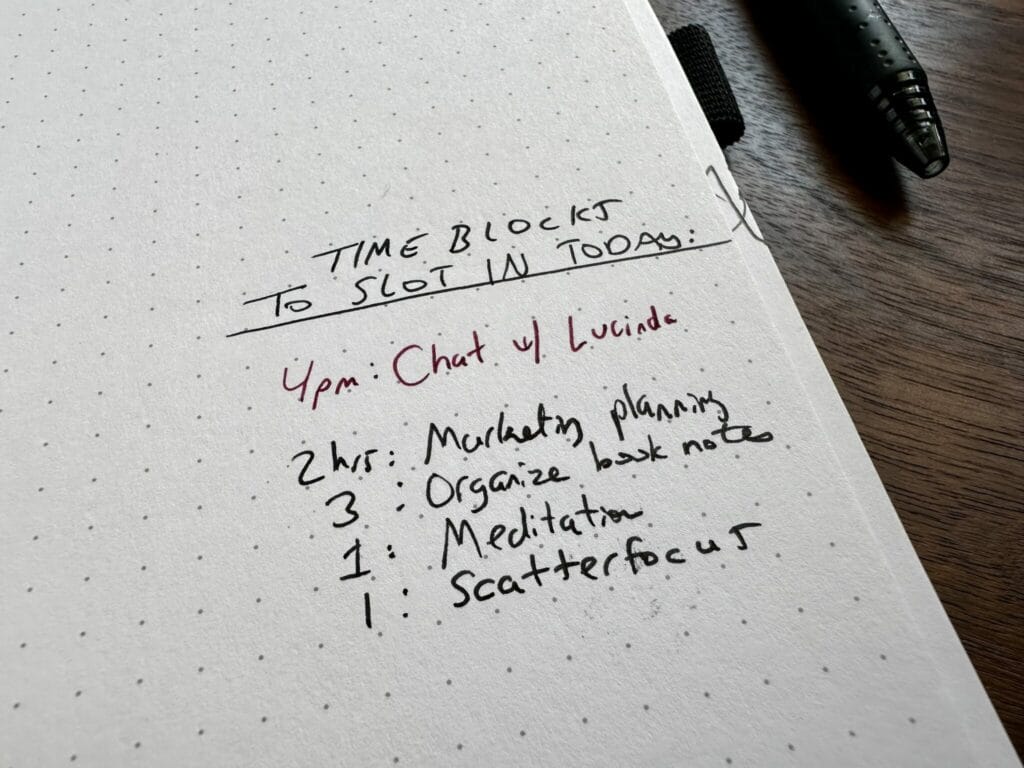 TIME BLOCKS
TO SLOT IN TODAY:
4pm: Chat w/ Lucinda
2 hrs: Marketing planning
3 : Organize book notes
1 : Meditation
1 : Scatterfocus